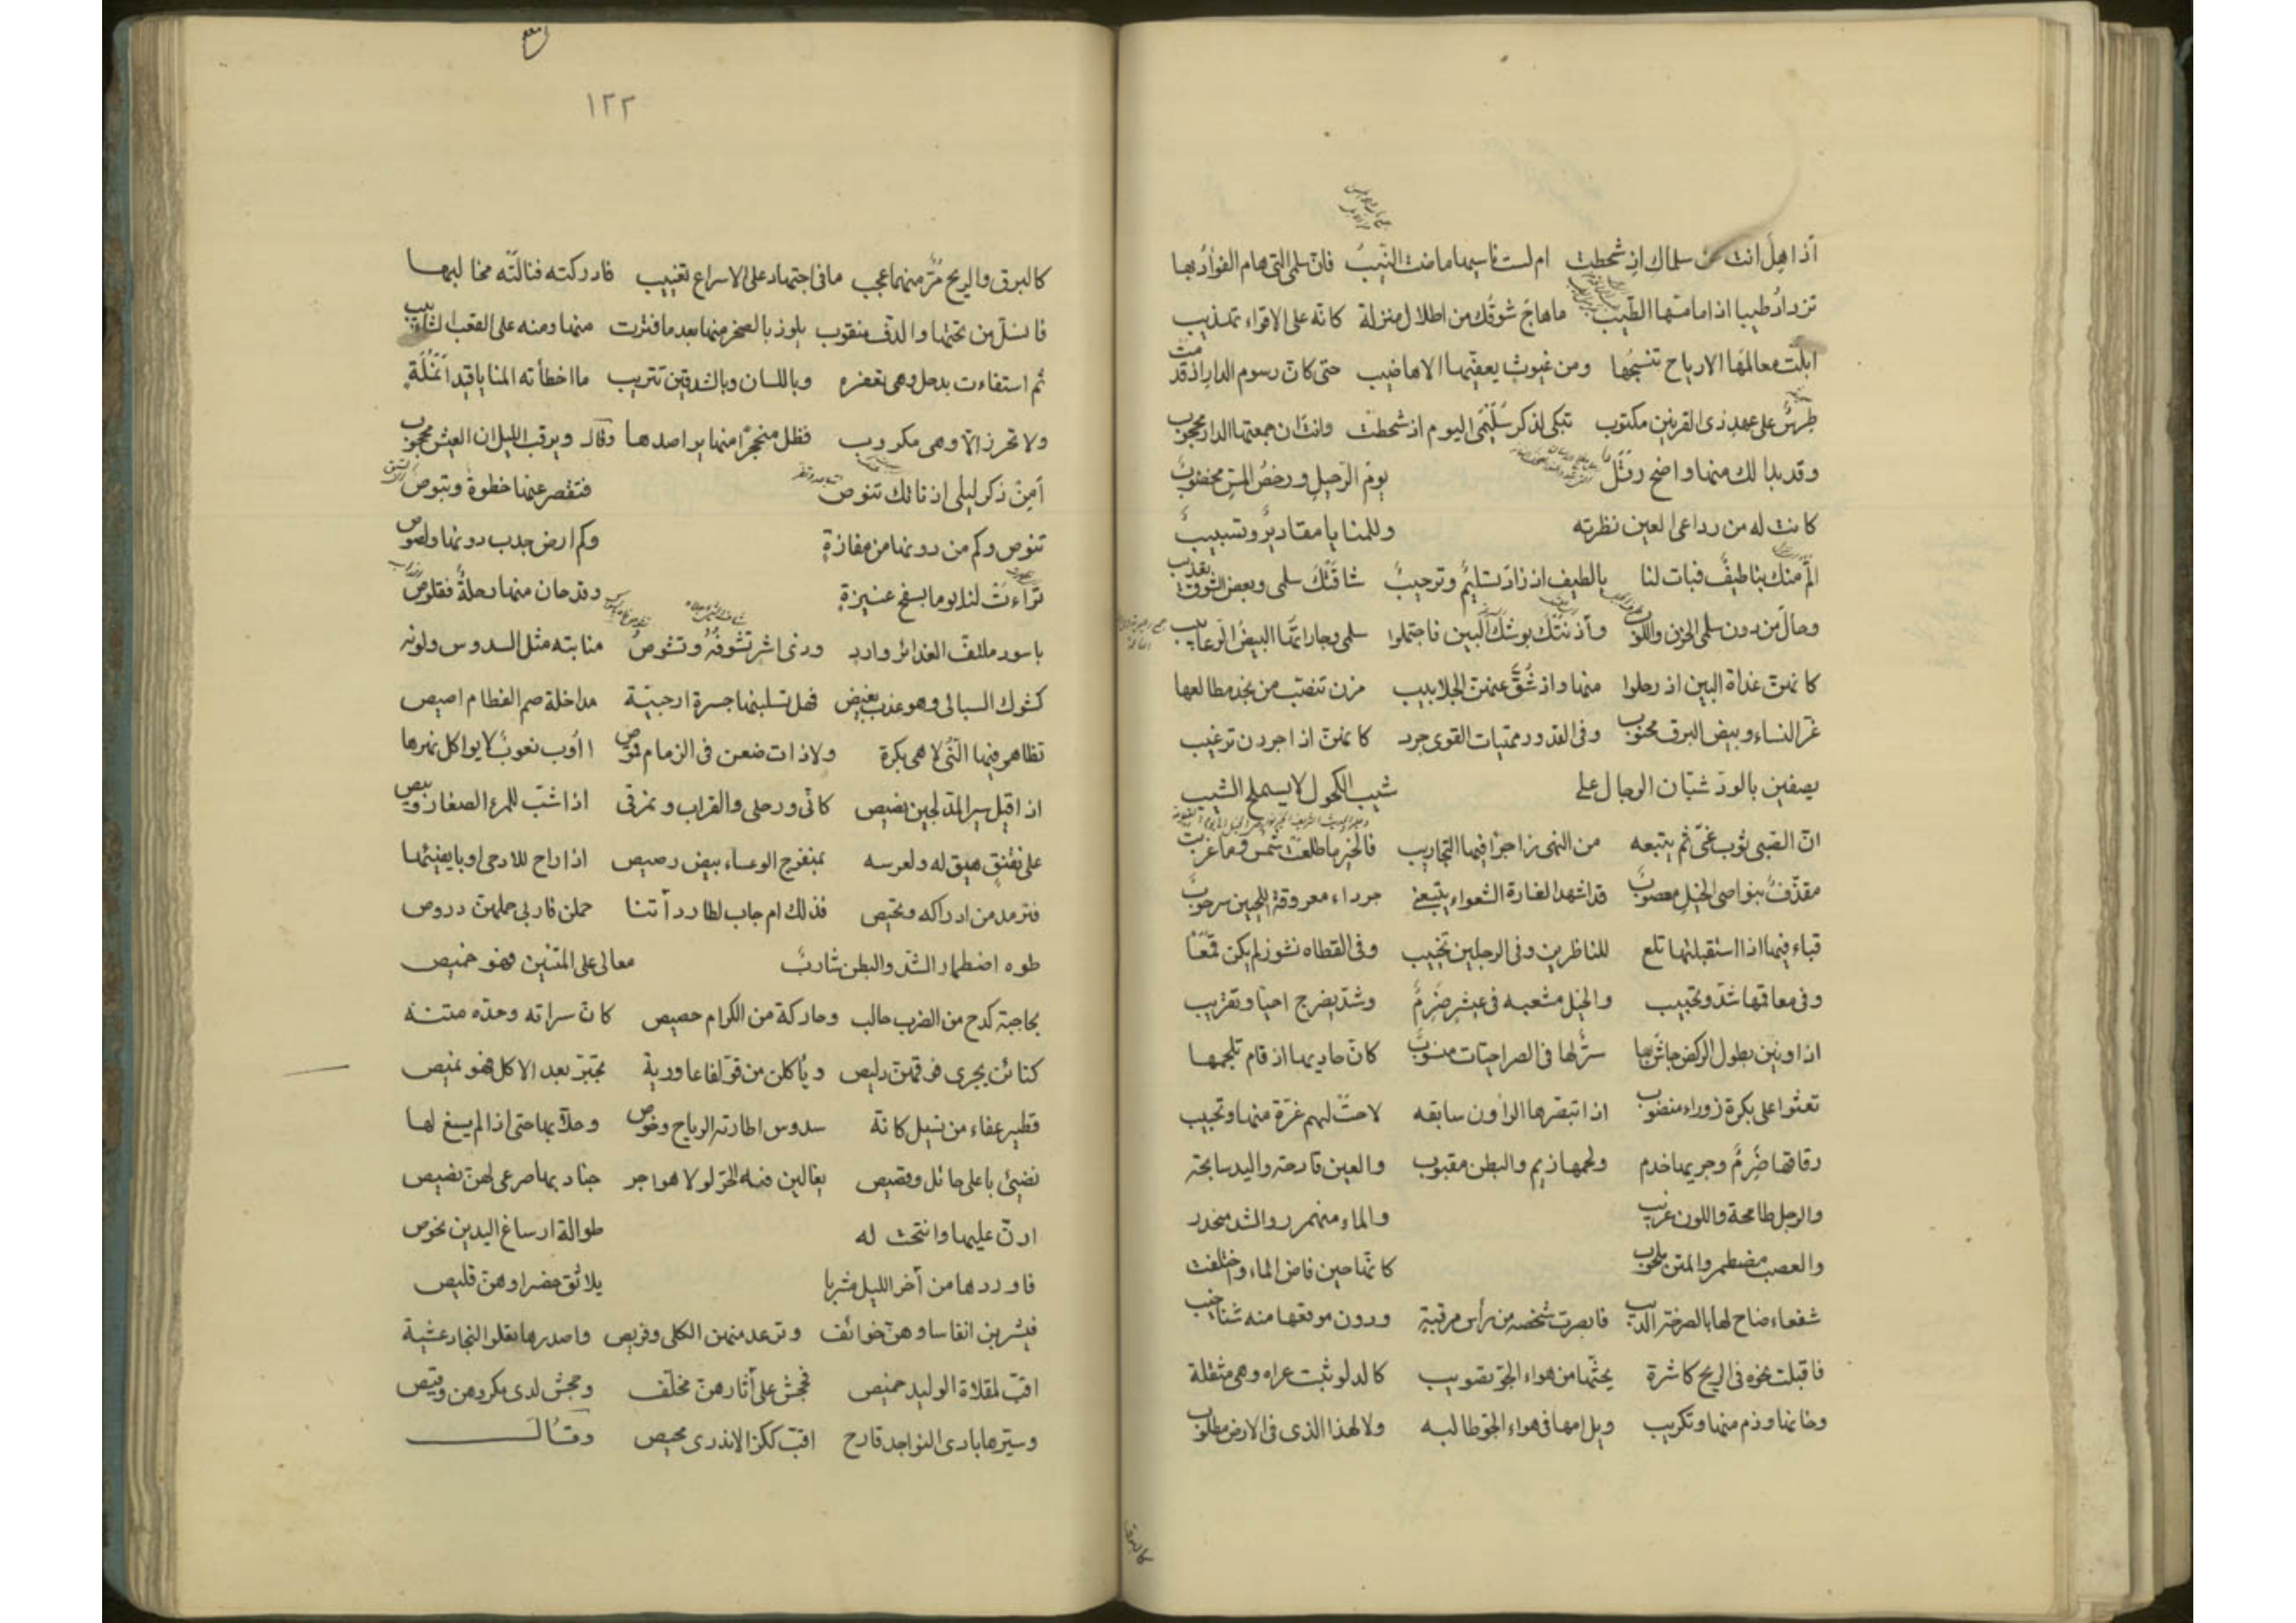 أذاهل انت عن سلماك اذ شحطت ام لست ناسيها ما حنت النيب فان سلمى التى هام الفؤاد بها
تزداد طيبا اذا ما مسها الطيب ما هاج شوقك من اطلال منزلة كانه على الاقواء تهذيب
ابلت معالمها الارياح تنسجها ومن غيوث يعفيها الاهاضيب حتى كان رسوم الدار اذ قدمت
طرس على عهد ذى القرنين مكتوب تبكى لذكر سليمى اليوم اذ شحطت وانت ان جمعتها الدار محجوب
وقد بدا لك منها واضح رتل يوم الرحيل ورخص المتن مخضوب
كانت له من رداعى العين نظرته وللمنايا مقادير وتسبيب
الم منك بنا طيف فبات لنا بالطيف اذ زاد تسليم وترحيب شاقتك سلمى وبعض الشوق تعذيب
وحال من دون سلمى الحزن واللوب وآذنتك بوشك البين فاحتملوا سلمى وجاراتها البيض الرعابيب
كانهن غداة البين اذ رحلوا منها واذ شق عنهن الجلابيب مزن تنصب من نجد مطالعها
غر النساء وبيض البرق محبوب وفى الخدور مهيات القوى جرد كانهن اذا جردن ترغيب
يصفين بالود شبان الرجال على شيب الكحول لا يسملح الشيب
ان الصبى ثوب غى ثم يتبعه من النهى زاجر فيها التجاريب فالخير ما طلعت شمس وما غربت
مقذف بنواصى الخيل معصوب قد اشهد الغارة الشعواء يتبعنى جرداء معروقة اللحيين سرحوب
قباء فيها اذا استقبلتها تلع للناظرين وفى الرجلين تحبيب وفى القطاه نشوز لم يكن قمعا
وفى معاقها شد وتحبيب والخيل مشعبه فى عيشر ضرم وشد يضرج احيا وتقريب
اذا ونين بطول الركض جاش بها سر لها فى الصراحيات منسوب كان حاديها اذ قام تلجمها
تعثوا على بكرة زوراء منصوب اذا تبصرها الراون سابقه لاحت لهم غرة منها وتحبيب
رقاقها ضرم وجريها خدم ولحمها زيم والبطن مقبوب والعين قادحة واليد سابحة
والرجل طامحة واللون غربيب والماء منهمر والشد منحدر
والعصب مضطمر والمتن ملحوب كانها حين فاض الماء واختلفت
شفعاء ضاح لها بالصرخة الذيب فابصرت شخصه من رأس مرقبة ودون موقعها منه شناخيب
فاقبلت نحوه فى الريح كاشرة يحثها من هواء الجو تصويب كالدلو ثبت عراه وهى مثقلة
وخانها وذم منها وتكريب ويل امها فى هواء الجو طالبه ولا لهذا الذى فى الارض مطلوب
كالبرق
١٢٢
كالبرق والريح مر منهما عجب ما فى اجتهاد على الاسراع تغبيب فادركته فنالته مخالبها
فانسل من تحتها والدف منقوب يلوذ بالصخر منها بعد ما فترت منها ومنه على العقب الشآبيب
ثم استفاءت بدحل وهى تعفره وباللسان وبالشدقين تتريب ما اخطأته المنايا قيد أنملة
ولا تحرز الا وهى مكروب فظل منجحرا منها يراصدها وقال ويرقب الليل ان العيش محجوب
أمن ذكر ليلى اذ نأتك تنوص فتقصر عنها خطوة وتبوص
تنوص وكم من دونها من مفازة وكم ارض جدب دونها ولصوص
تراءت لنا يوما بسفح عنيزة وقد حان منها رحلة فقلوص
باسود ملتف الغدائر وارد وذى اشر تشوفه وتشوص منابته مثل السدوس ولونه
كشوك السيال وهو عذب يفيض فهل تسلينها جسرة ارحبية مداخلة صم العظام اصيص
تظاهر فيها النى لا هى بكرة ولا ذات ضعن فى الزمام قموص اؤوب نعوب لا يواكل نهرها
اذا قيل سير المدلجين نصيص كانى ورحلى والقراب ونمرقى اذا شب للمرء الصغار وبيص
على نقنق هيق له ولعرسه بمنفرج الوعساء بيض رصيص اذا راح للادحى اوبا يفيئها
فترمد من ادراكه وتحيص فذلك ام جاب لطارد أتنا حملن فاربى حملهن دروص
طوه اضطمار الشد والبطن شازب معالى على المتنين فهو خميص
بحاجبه كدح من الضرب جالب وحاركة من الكرام حصيص كان سراته وجده متنه
كنائن يجرى فوقهن دليص وياكلن من قو لفاعا وربة تجبر بعد الاكل فهو نميص
قطير عفاء من نسيل كانه سدوس اطارته الرياح وخوص وحلأ بها حتى اذا لم يسغ لها
نصئ باعلى حائل وقصيص يغالين فيه الجر لولا هواجر جنادبها صرعى لهن نصيص
ارن عليها وانتحت له طوالة ارساغ اليدين نحوص
فاوردها من آخر الليل مشربا بلائق خضرا وهن قليص
فيشربن انفاسا وهن خوائف وترعد منهن الكلى وفريص واصدرها تعلوا النجاد عشية
اقب لمقلاة الوليد خميص فجحش على آثارهن مخلف وجحش لدى مكرهن وقيص
وسيرها بادى النواجذ قارح اقب ككر الاندرى محيص وقال